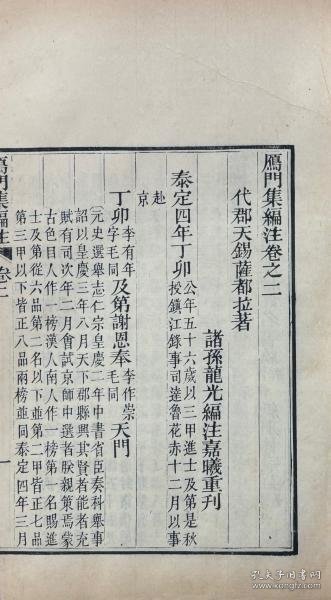 鴈門集編注卷之二
代郡天錫薩都拉著
諸孫龍光編注嘉曦重刊
泰定四年丁卯公年五十六歲以三甲進士及第是秋
授鎮江錄事司達魯花赤十二月以事
赴
京
丁卯李有年字毛同及第謝恩奉李作崇毛同天門
元史選舉志仁宗皇慶二年中書省臣奏科舉事
詔以皇慶三年八月天下郡縣興其賢者能者充
賦有司次年二月會試京師中選者朕親策焉蒙
古色目人作一榜漢人南人作一榜第一名賜進
士及第從六品第二名以下並第二甲皆正七品
第三甲以下皆正八品兩榜並同泰定四年三月
鴈門集編注 卷二
一
孔夫子旧书网